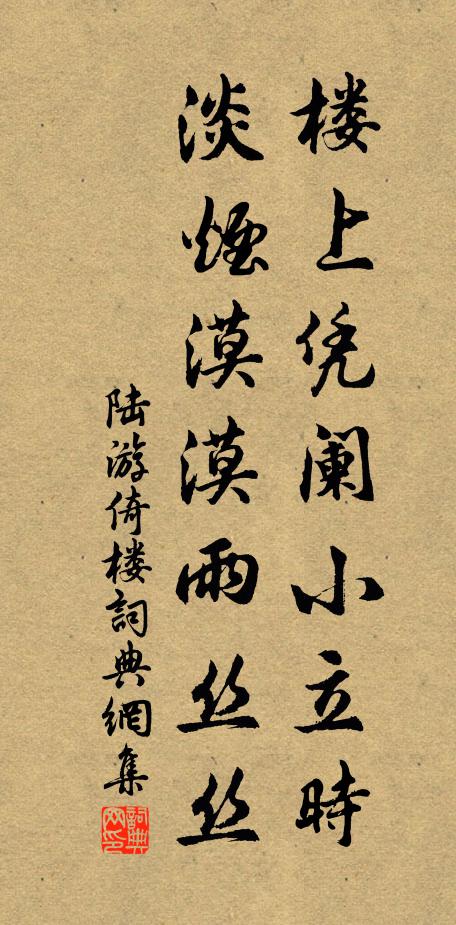 楼上凭阑小立时
淡烟漠漠雨丝丝
陆游倚楼詞典網集
詞典网印